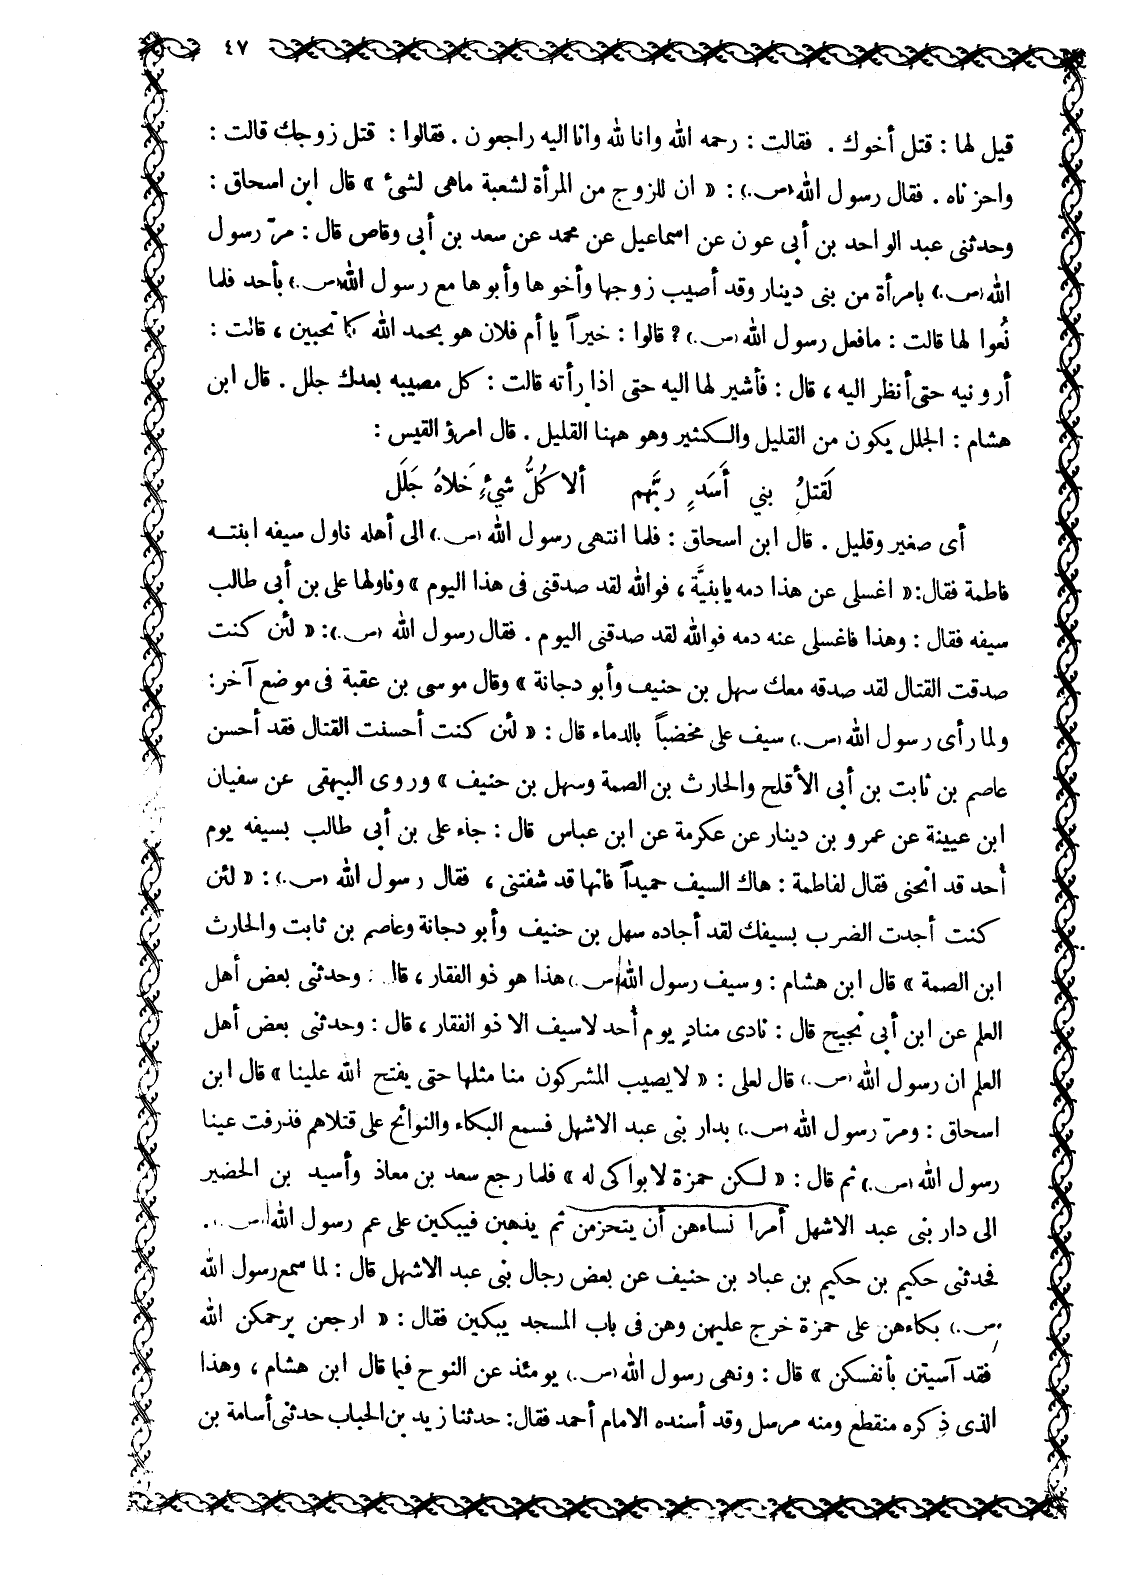 ٤٧
قيل لها : قتل أخوك . فقالت : رحمه الله وانا لله وانا اليه راجعون . فقالوا : قتل زوجك قالت :
واحزناه . فقال رسول الله (ص.) : « ان للزوج من المرأة لشعبة ماهى لشىء » قال ابن اسحاق :
وحدثنى عبد الواحد بن أبى عون عن اسماعيل عن محمد عن سعد بن أبى وقاص قال : مرّ رسول
الله (ص.) بامرأة من بنى دينار وقد أصيب زوجها وأخوها وأبوها مع رسول الله (ص.) بأحد فلما
نُعوا لها قالت : مافعل رسول الله (ص.) ؟ قالوا : خيراً يا أم فلان هو بحمد الله كما تحبين ، قالت :
أرونيه حتى أنظر اليه ، قال : فأشير لها اليه حتى اذا رأته قالت : كل مصيبه بعدك جلل . قال ابن
هشام : الجلل يكون من القليل والكثير وهو ههنا القليل . قال امرؤ القيس :
لَقتلُ بني أَسَدٍ ربَّهم ألا كُلُّ شيءٍ خَلاهُ جَلَل
أى صغير وقليل . قال ابن اسحاق : فلما انتهى رسول الله (ص.) الى أهله ناول سيفه ابنته
فاطمة فقال : « اغسلى عن هذا دمه يابنيَّة ، فوالله لقد صدقنى فى هذا اليوم » وناولها على بن أبى طالب
سيفه فقال : وهذا فاغسلى عنه دمه فوالله لقد صدقنى اليوم . فقال رسول الله (ص.) : « لئن كنت
صدقت القتال لقد صدقه معك سهل بن حنيف وأبو دجانة » وقال موسى بن عقبة فى موضع آخر :
ولما رأى رسول الله (ص.) سيف على مخضباً بالدماء قال : « لئن كنت أحسنت القتال فقد أحسن
عاصم بن ثابت بن أبى الأقلح والحارث بن الصمة وسهل بن حنيف » وروى البيهقى عن سفيان
ابن عيينة عن عمرو بن دينار عن عكرمة عن ابن عباس قال : جاء على بن أبى طالب بسيفه يوم
أُحد قد انحنى فقال لفاطمة : هاك السيف حميداً فانها قد شفتنى ، فقال رسول الله (ص.) : « لئن
كنت أجدت الضرب بسيفك لقد أجاده سهل بن حنيف وأبو دجانة وعاصم بن ثابت والحارث
ابن الصمة » قال ابن هشام : وسيف رسول الله (ص.) هذا هو ذو الفقار ، قال : وحدثنى بعض أهل
العلم عن ابن أبى نجيح قال : نادى منادٍ يوم أُحد لاسيف الا ذو الفقار ، قال : وحدثنى بعض أهل
العلم ان رسول الله (ص.) قال لعلى : « لا يصيب المشركون منا مثلها حتى يفتح الله علينا » قال ابن
اسحاق : ومرّ رسول الله (ص.) بدار بنى عبد الاشهل فسمع البكاء والنوائح على قتلاهم فذرفت عينا
رسول الله (ص.) ثم قال : « لكن حمزة لا بواكى له » فلما رجع سعد بن معاذ وأسيد بن الحضير
الى دار بنى عبد الاشهل أمرا نساءهن أن يتحزمن ثم يذهبن فيبكين على عم رسول الله (ص.) .
فحدثنى حكيم بن حكيم بن عباد بن حنيف عن بعض رجال بنى عبد الاشهل قال : لما سمع رسول الله
(ص.) بكاءهن على حمزة خرج عليهن وهن فى باب المسجد يبكين فقال : « ارجعن يرحمكن الله
فقد آسيتن بأنفسكن » قال : ونهى رسول الله (ص.) يومئذ عن النوح فيما قال ابن هشام ، وهذا
الذى ذكره منقطع ومنه مرسل وقد أسنده الامام أحمد فقال : حدثنا زيد بن الحباب حدثنى أسامة بن